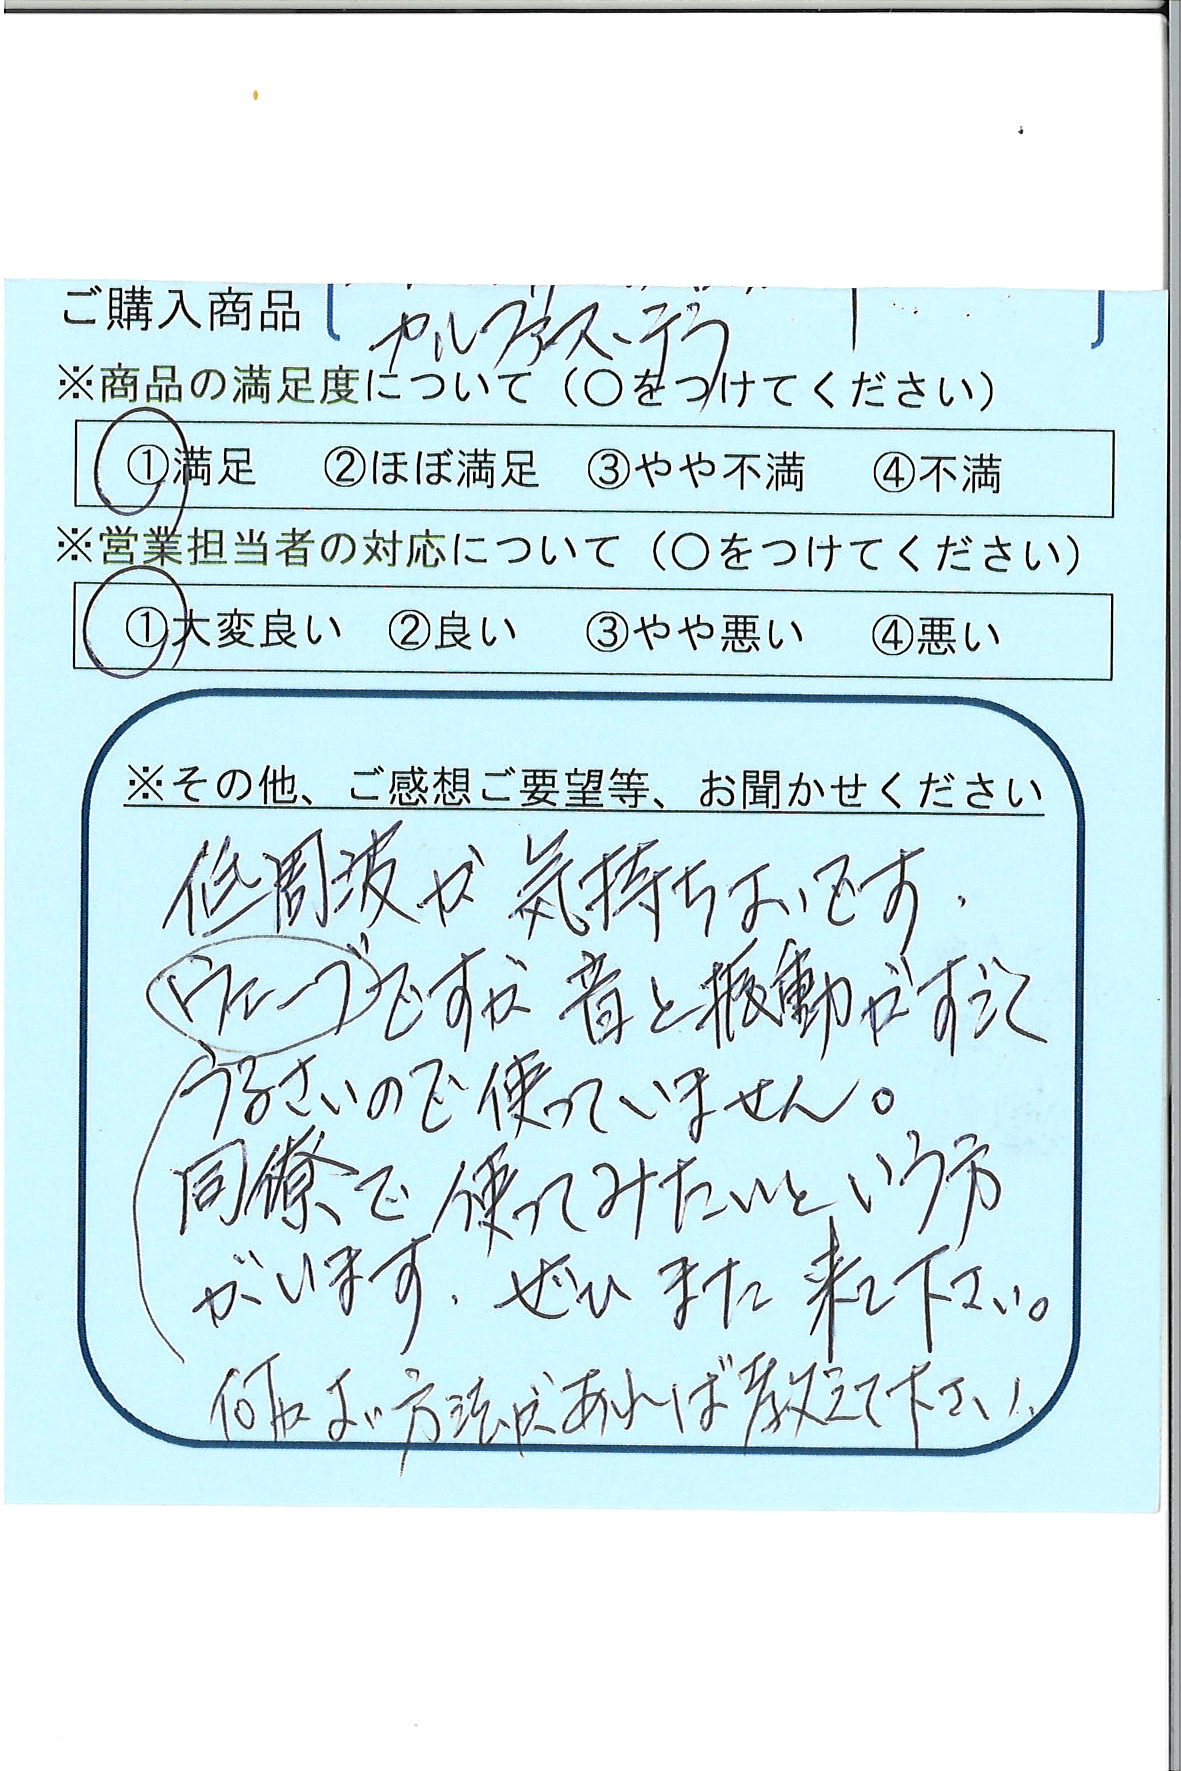 ご購入商品
※商品の満足度について（○をつけてください）
①満足 ②ほぼ満足 ③やや不満 ④不満
※営業担当者の対応について（○をつけてください）
①大変良い ②良い ③やや悪い ④悪い
※その他、ご感想ご要望等、お聞かせください
低周波が気持ちよいです.
ウェーブですが音と振動が
うるさいので使っていません。
同僚で使ってみたいという方
がいます. ぜひまた来て下さい。
何かよい方法があれば教えて下さい.